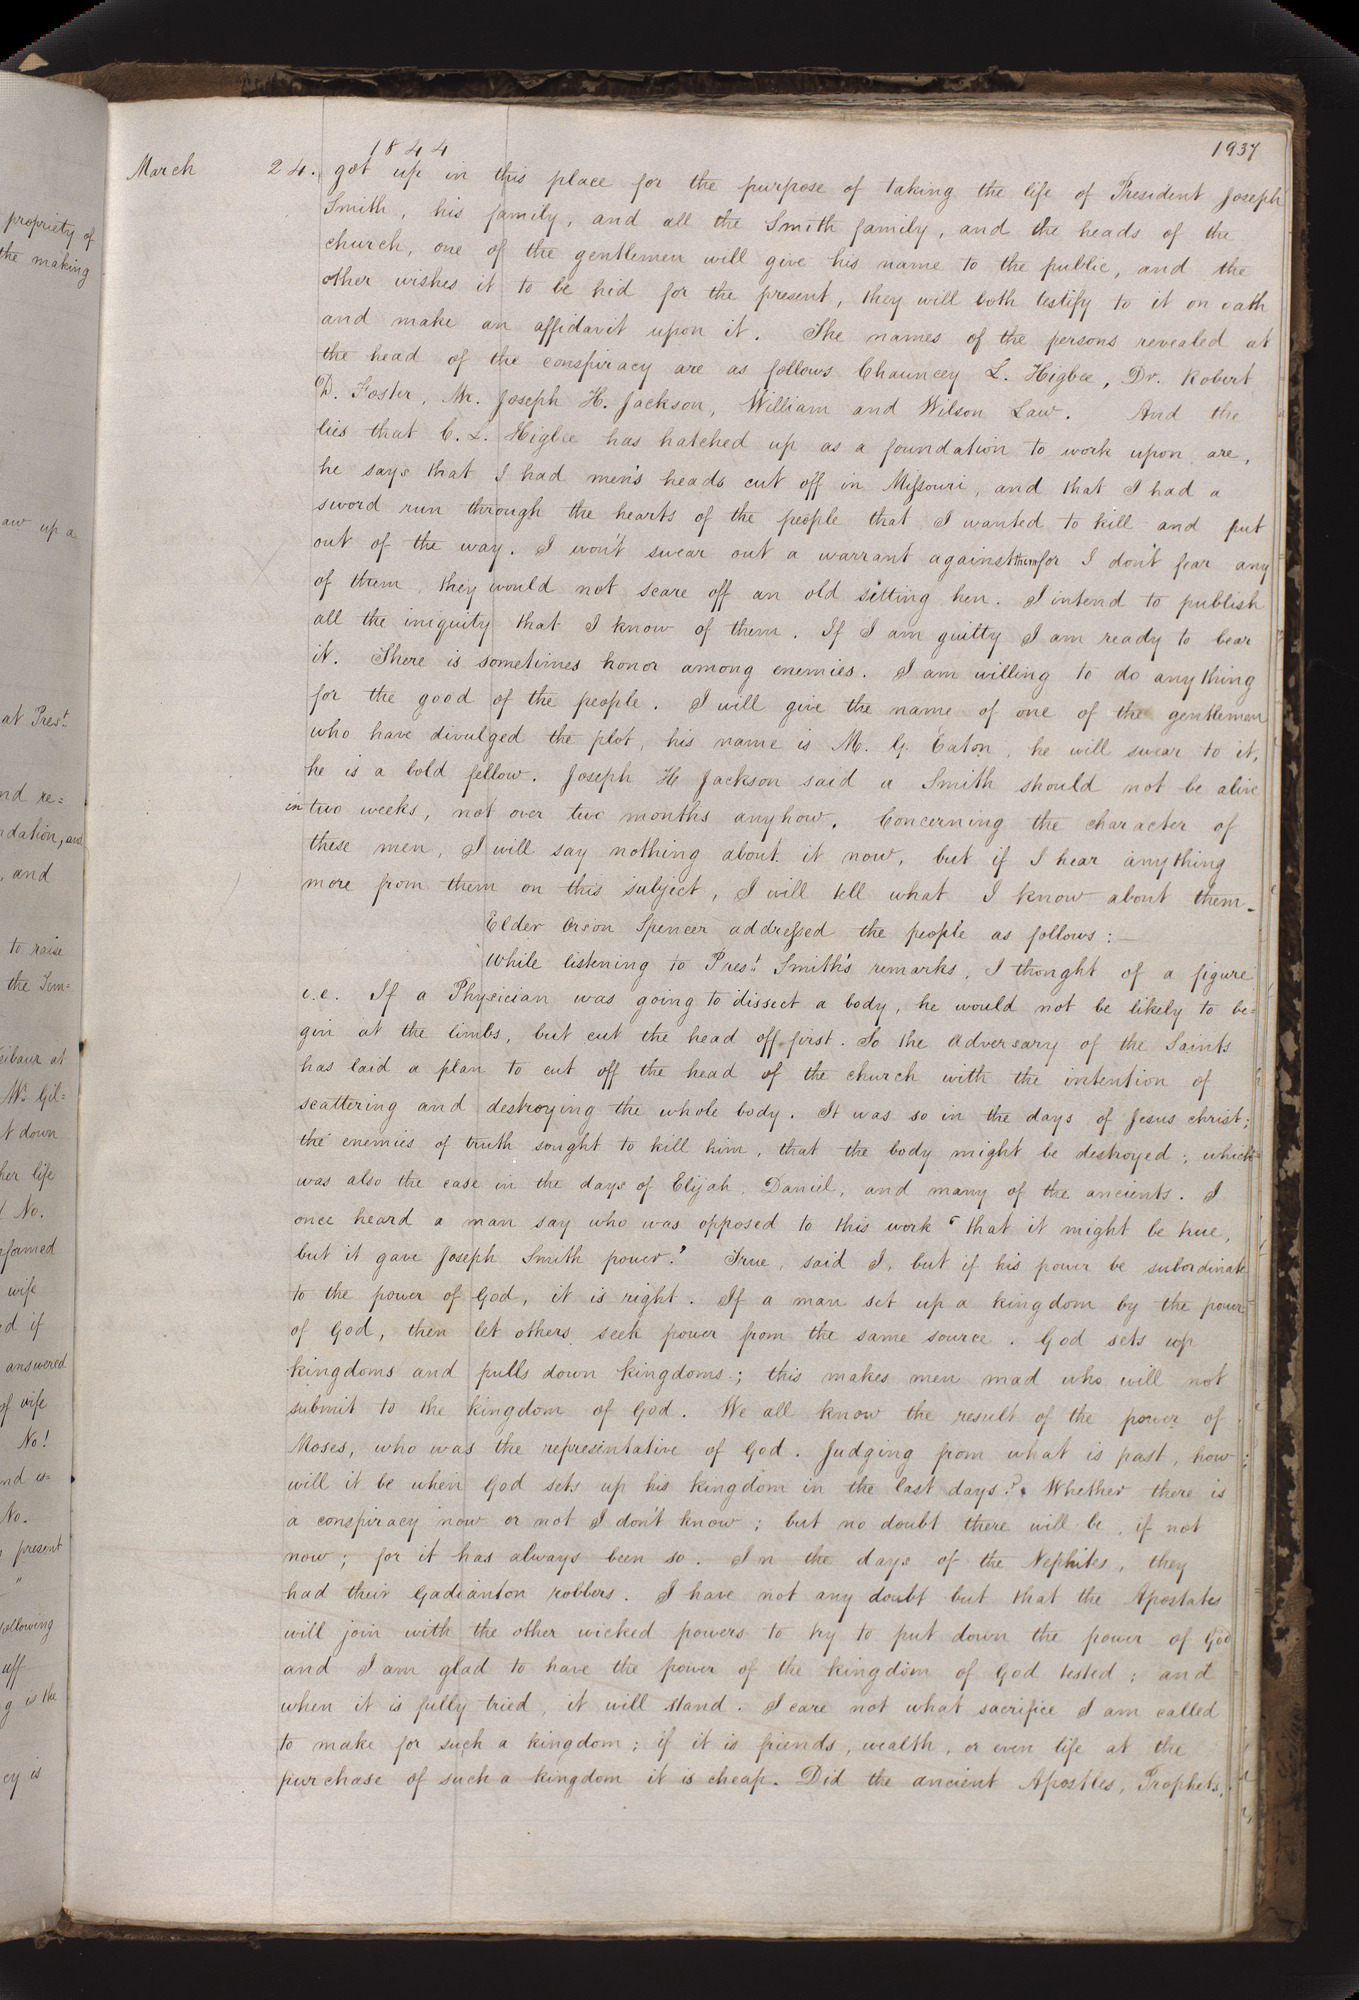 1844
1937
March 24. got up in this place for the purpose of taking the life of President Joseph
Smith, his family, and all the Smith family, and the heads of the
church, one of the gentlemen will give his name to the public, and the
other wishes it to be hid for the present, they will both testify to it on oath
and make an affidavit upon it. The names of the persons revealed at
the head of the conspiracy are as follows Chauncey L. Higbee, Dr. Robert
D. Foster, Mr. Joseph H. Jackson, William and Wilson Law. And the
lies that C. L. Higbee has hatched up as a foundation to work upon are,
he says that I had men's heads cut off in Missouri, and that I had a
sword run through the hearts of the people that I wanted to kill and put
out of the way. I won't swear out a warrant against them for I don't fear any
of them, they would not scare off an old sitting hen. I intend to publish
all the iniquity that I know of them. If I am guilty I am ready to bear
it. There is sometimes honor among enemies. I am willing to do any thing
for the good of the people. I will give the name of one of the gentlemen
who have divulged the plot, his name is M. G. Eaton, he will swear to it,
he is a bold fellow. Joseph H Jackson said a Smith should not be alive
in two weeks, not over two months anyhow. Concerning the character of
these men, I will say nothing about it now, but if I hear anything
more from them on this subject, I will tell what I know about them.
Elder Orson Spencer addressed the people as follows:—
While listening to Prest. Smith's remarks, I thought of a figure
i.e. If a Physician was going to dissect a body, he would not be likely to be=
gin at the limbs, but cut the head off first. So the adversary of the Saints
has laid a plan to cut off the head of the church with the intention of
scattering and destroying the whole body. It was so in the days of Jesus christ;
the enemies of truth sought to kill him, that the body might be destroyed; which
was also the case in the days of Elijah, Daniel, and many of the ancients. I
once heard a man say who was opposed to this work ‘that it might be true,
but it gave Joseph Smith power.’ True, said I, but if his power be subordinate
to the power of God, it is right. If a man set up a kingdom by the power
of God, then let others seek power from the same source. God sets up
kingdoms and pulls down kingdoms; this makes men mad who will not
submit to the kingdom of God. We all know the result of the power of
Moses, who was the representative of God. Judging from what is past, how
will it be when God sets up his kingdom in the last days? Whether there is
a conspiracy now or not I don't know; but no doubt there will be, if not
now; for it has always been so. In the days of the Nephites, they
had their Gadianton robbers. I have not any doubt but that the Apostates
will join with the other wicked powers to try to put down the power of God
and I am glad to have the power of the kingdom of God tested; and
when it is fully tried, it will stand. I care not what sacrifice I am called
to make for such a kingdom; if it is friends, wealth, or even life at the
purchase of such a kingdom it is cheap. Did the ancient Apostles, Prophets,
propriety of
the making
aw up a
at Prest.
nd re=
dation, and
, and
to raise
the Tem=
at
Gil=
t down
her life
No.
formed
wife
d if
answered
of wife
No!
No.
present
following
g is the
cy is